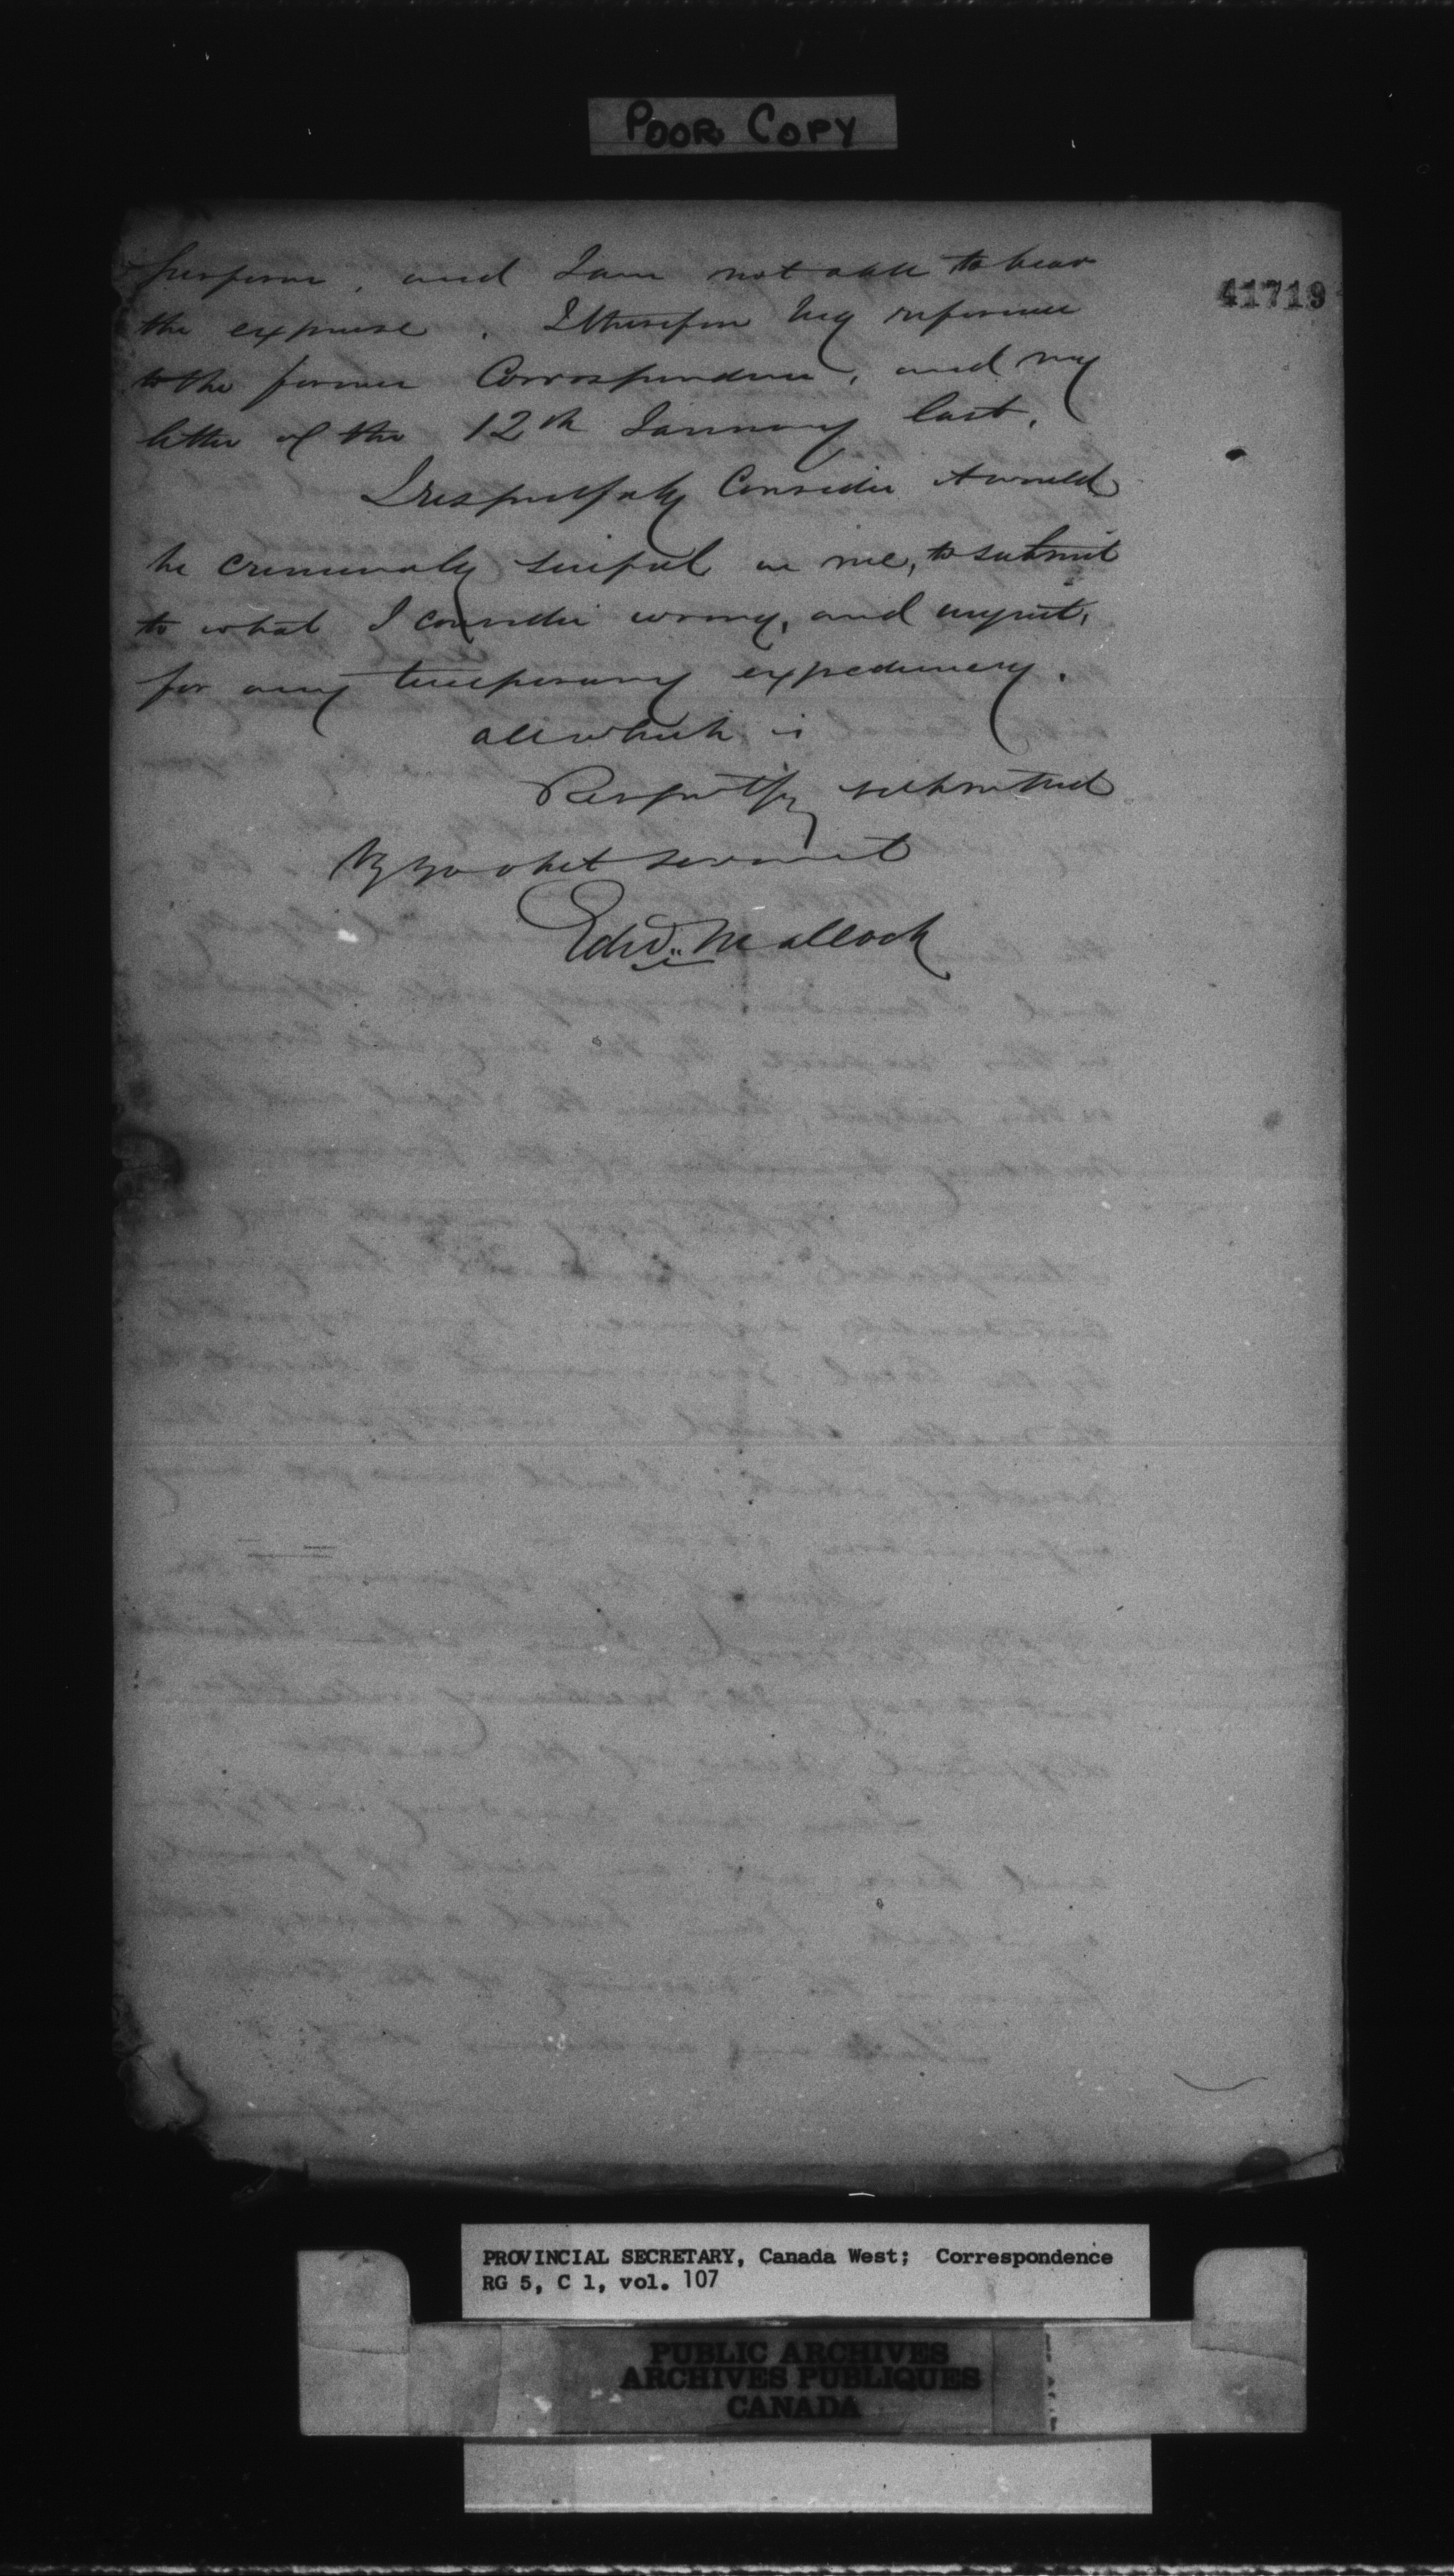 POOR COPY
41719
perform, and I am not able to bear
the expense. I therefore beg reference
to the former Correspondence, and my
letter of the 12th January last.
I respectfully Consider it would
be criminally sinful in me, to submit
to what I consider wrong, and unjust,
for any temporary expediency.
all which is
Respectfy submitted
By yr obet servant
Edwd. Malloch
PROVINCIAL SECRETARY, Canada West; Correspondence
RG 5, C 1, vol. 107
PUBLIC ARCHIVES
ARCHIVES PUBLIQUES
CANADA